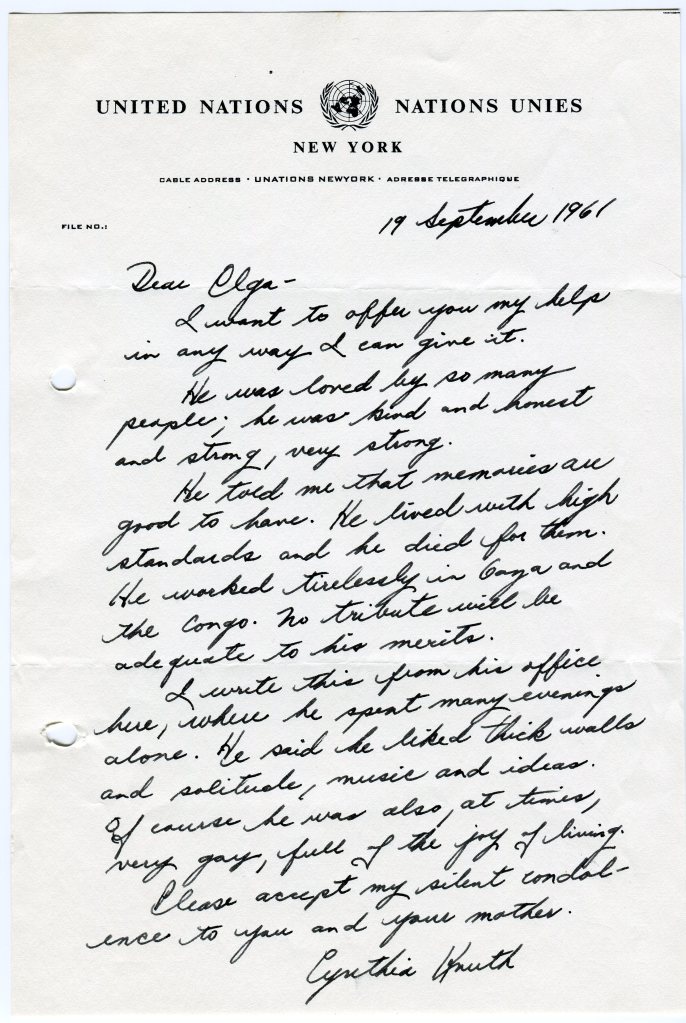 UNITED NATIONS NATIONS UNIES
NEW YORK
CABLE ADDRESS · UNATIONS NEWYORK · ADRESSE TELEGRAPHIQUE
FILE NO.:
19 September 1961
Dear Olga-
I want to offer you my help
in any way I can give it.
He was loved by so many
people; he was kind and honest
and strong, very strong.
He told me that memories are
good to have. He lived with high
standards and he died for them.
He worked tirelessly in Gaza and
the Congo. No tribute will be
adequate to his merits.
I write this from his office
here, where he spent many evenings
alone. He said he liked thick walls
and solitude, music and ideas.
Of course he was also, at times,
very gay, full of the joy of living.
Please accept my silent condol-
ence to you and your mother.
Cynthia Knuth